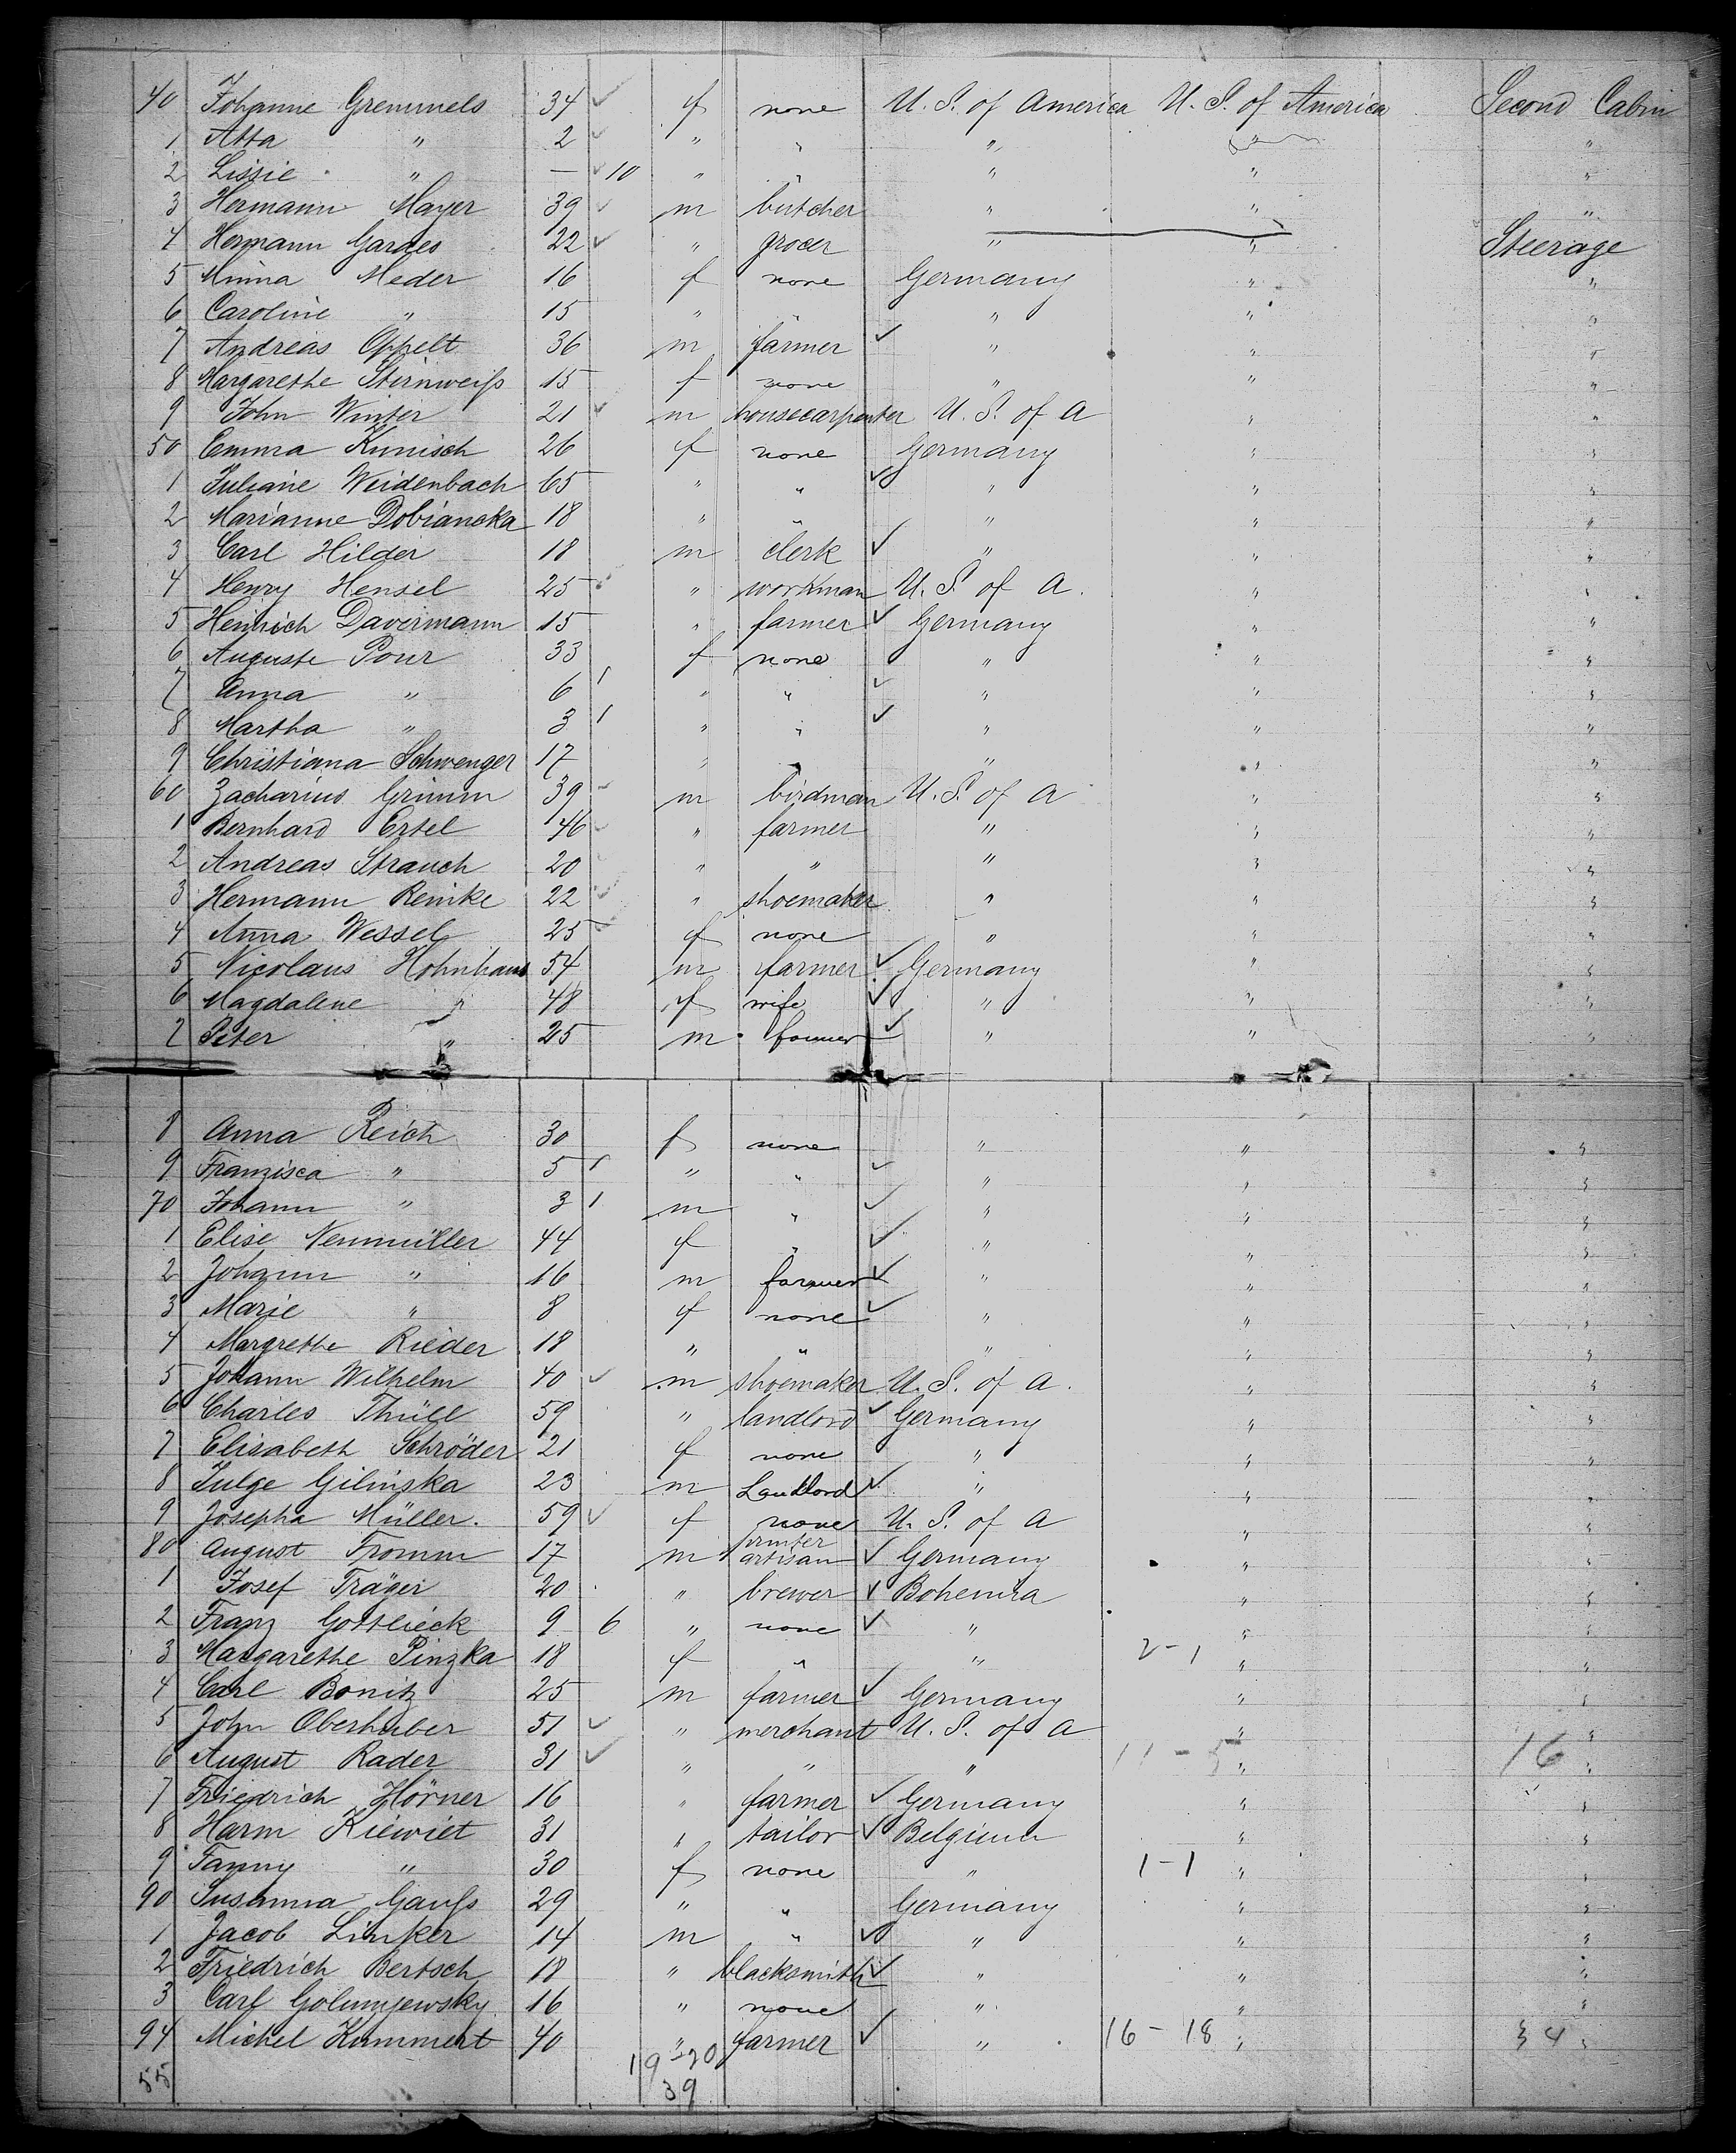 40 Johanne Gremmels 34 ✓ f none U. S. of America U. S. of America Second Cabin
1 Atta " 2 ✓ " " " " "
2 Lissie " — ✓ 10 " " " " "
3 Hermann Mayer 39 ✓ m butcher " " "
4 Hermann Gardes 22 ✓ " grocer " " Steerage
5 Minna Meder 16 f none Germany " "
6 Caroline " 15 " " " " "
7 Andreas Oppelt 36 m farmer ✓ " " "
8 Margarethe Sternweiß 15 f none " " "
9 John Winter 21 ✓ m housecarpenter U. S. of A " "
50 Emma Kunisch 26 f none Germany " "
1 Juliane Weidenbach 65 " " ✓ " " "
2 Marianne Dobiancka 18 " " " " "
3 Carl Hilder 18 m clerk ✓ " " "
4 Henry Hensel 25 ✓ " workman U. S. of A. " "
5 Heinrich Davermann 15 " farmer ✓ Germany " "
6 Auguste Pour 33 f none " " "
7 Anna " 6 / " " ✓ " " "
8 Martha " 3 / " " ✓ " " "
9 Christiana Schwenger 17 " " " " "
60 Zacharius Grimm 39 ✓ m birdman U. S. of A " "
1 Bernhard Ertel 46 ✓ " farmer " " "
2 Andreas Strauch 20 " " " " "
3 Hermann Reinke 22 ✓ " shoemaker " " "
4 Anna Wessel 25 ✓ f none " " "
5 Nicolaus Hohnhaus 54 m farmer ✓ Germany " "
6 Magdalene " 48 f wife ✓ " " "
7 Peter " 25 m farmer ✓ " " "
8 Anna Reich 30 f none " " "
9 Franzisca " 5 / " " ✓ " " "
70 Johann " 3 / m " ✓ " " "
1 Elise Neumüller 44 f " ✓ " " "
2 Johann " 16 m farmer ✓ " " "
3 Marie " 8 f none ✓ " " "
4 Margrethe Rieder 18 " " " " "
5 Johann Wilhelm 40 ✓ m shoemaker U. S. of A. " "
6 Charles Thüll 59 " landlord ✓ Germany " "
7 Elisabeth Schröder 21 f none " " "
8 Julge Gilinska 23 m Landlord ✓ " " "
9 Josepha Müller. 59 ✓ f none U. S. of A " "
printer
80 August Fromm 17 m artisan ✓ Germany " "
1 Josef Träger 20 " brewer ✓ Bohemia " "
2 Franz Gottlieck 9 6 " none ✓ " " "
3 Margarethe Pinzka 18 f " " 2-1 " "
4 Carl Bonitz 25 m farmer ✓ Germany " "
5 John Oberhuber 51 ✓ " merchant U. S. of A " "
6 August Rader 31 ✓ " " " 11-5 " 16 "
7 Friedrich Hörner 16 " farmer ✓ Germany " "
8 Harm Kiewiet 31 " tailor ✓ Belgium " "
9 Fanny " 30 f none " 1-1 " "
90 Susanna Gauß 29 " " Germany " "
1 Jacob Linker 14 m " ✓ " " "
2 Friedrich Bertsch 18 " blacksmith ✓ " " "
3 Carl Golumjewsky 16 " none " " "
94 Michel Kummert 40 " farmer ✓ " 16-18 " 34 "
55 19-20
39